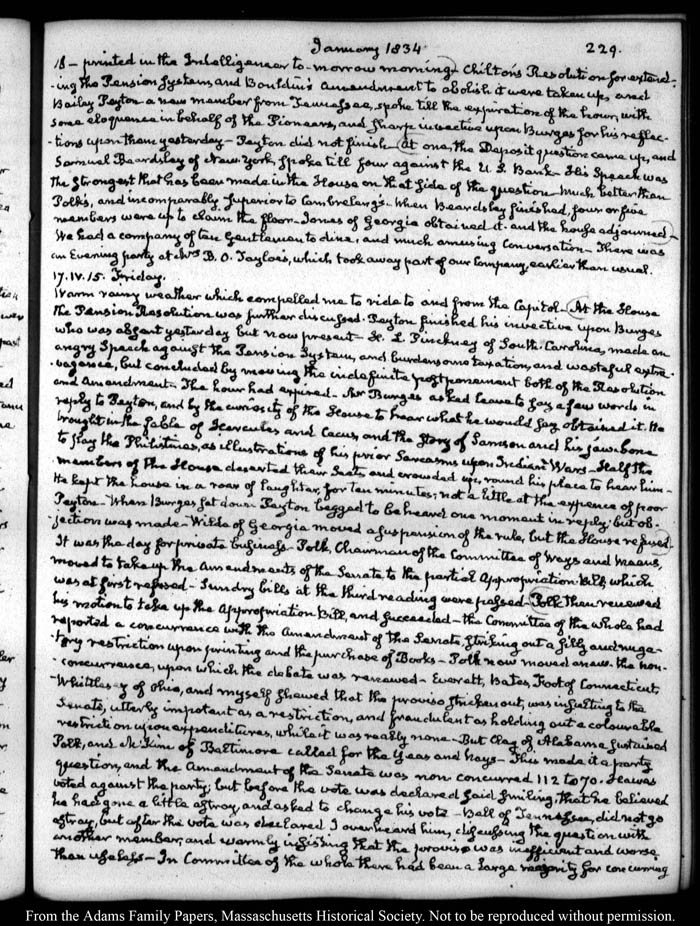 January 1834
229.
18 - printed in the Intelligencer to-morrow morning - Chilton's Resolution for extend-
-ing the Pension System, and Bouldin's Amendment to abolish it were taken up, and
Bailey Peyton a new member from Tennessee, spoke till the expiration of the hour, with
some eloquence in behalf of the Pioneers, and sharp invective upon Burges for his reflec-
-tions upon them yesterday - Peyton did not finish - At one, the Deposit question came up, and
Samuel Beardsley of New-York, spoke till four against the U.S. Bank - His Speech was
the strongest that has been made in the House on that side of the question - much better than
Polk's, and incomparably superior to Cambreleng's - When Beardsley finished, four or five
members were up to claim the floor - Jones of Georgia obtained it - and the house adjourned -
We had a company of ten Gentlemen to dine, and much amusing Conversation - There was
an Evening party at Mrs B. O. Tayloe's, which took away part of our Company, earlier than usual.
17. IV. 15. Friday.
Warm rainy weather which compelled me to ride to and from the Capitol - At the House
the Pension Resolution was further discussed. Peyton finished his invective upon Burges
who was absent yesterday but now present - H. L. Pinckney of South-Carolina, made an
angry Speech against the Pension System, and burdensome taxation, and wasteful extra-
-vagance, but concluded by moving the indefinite postponement both of the Resolution
and Amendment - The hour had expired - Mr Burges asked leave to say a few words in
reply to Peyton, and by the curiosity of the House to hear what he would say obtained it. He
brought in the fable of Hercules and Cacus, and the story of Samson and his jaw-bone
to slay the Philistines, as illustrations of his prior Sarcasms upon Indian Wars - Half the
members of the House deserted their Seats, and crowded up, round his place to hear him -
He kept the house in a roar of laughter, for ten minutes; not a little at the expence of poor
Peyton - When Burges sat down Peyton begged to be heard one moment in reply; but ob-
-jection was made - Wilde of Georgia moved a suspension of the rule, but the House refused -
It was the day for private business - Polk, Chairman of the Committee of Ways and Means,
moved to take up the Amendments of the Senate to the partial Appropriation Bill, which
was at first refused - Sundry bills at the third reading were passed - Polk then renewed
his motion to take up the Appropriation-Bill, and succeeded - the Committee of the whole had
reported a concurrence with the Amendment of the Senate, striking out a silly and nuga-
-tory restriction upon printing and the purchase of Books - Polk now moved anew the non-
-concurrence, upon which the debate was renewed - Everett, Bates, Foot of Connecticut,
Whittlesey of Ohio, and myself shewed that the proviso stricken out, was insulting to the
Senate, utterly impotent as a restriction, and fraudulent as holding out a colourable
restriction upon expenditures, while it was really none - But Clay of Alabama sustained
Polk, and McKim of Baltimore called for the Yeas and Nays - This made it a party
question, and the Amendment of the Senate was non-concurred 112 to 70. Hawes
voted against the party; but before the vote was declared said smiling, that he believed
he had gone a little astray, and asked to change his vote - Bell of Tennessee, did not go
astray, but after the vote was declared I overheard him, discussing the question with
another member, and warmly insisting that the proviso was inefficient and worse
than useless - In Committee of the whole there had been a large majority for concurring
From the Adams Family Papers, Massachusetts Historical Society. Not to be reproduced without permission.